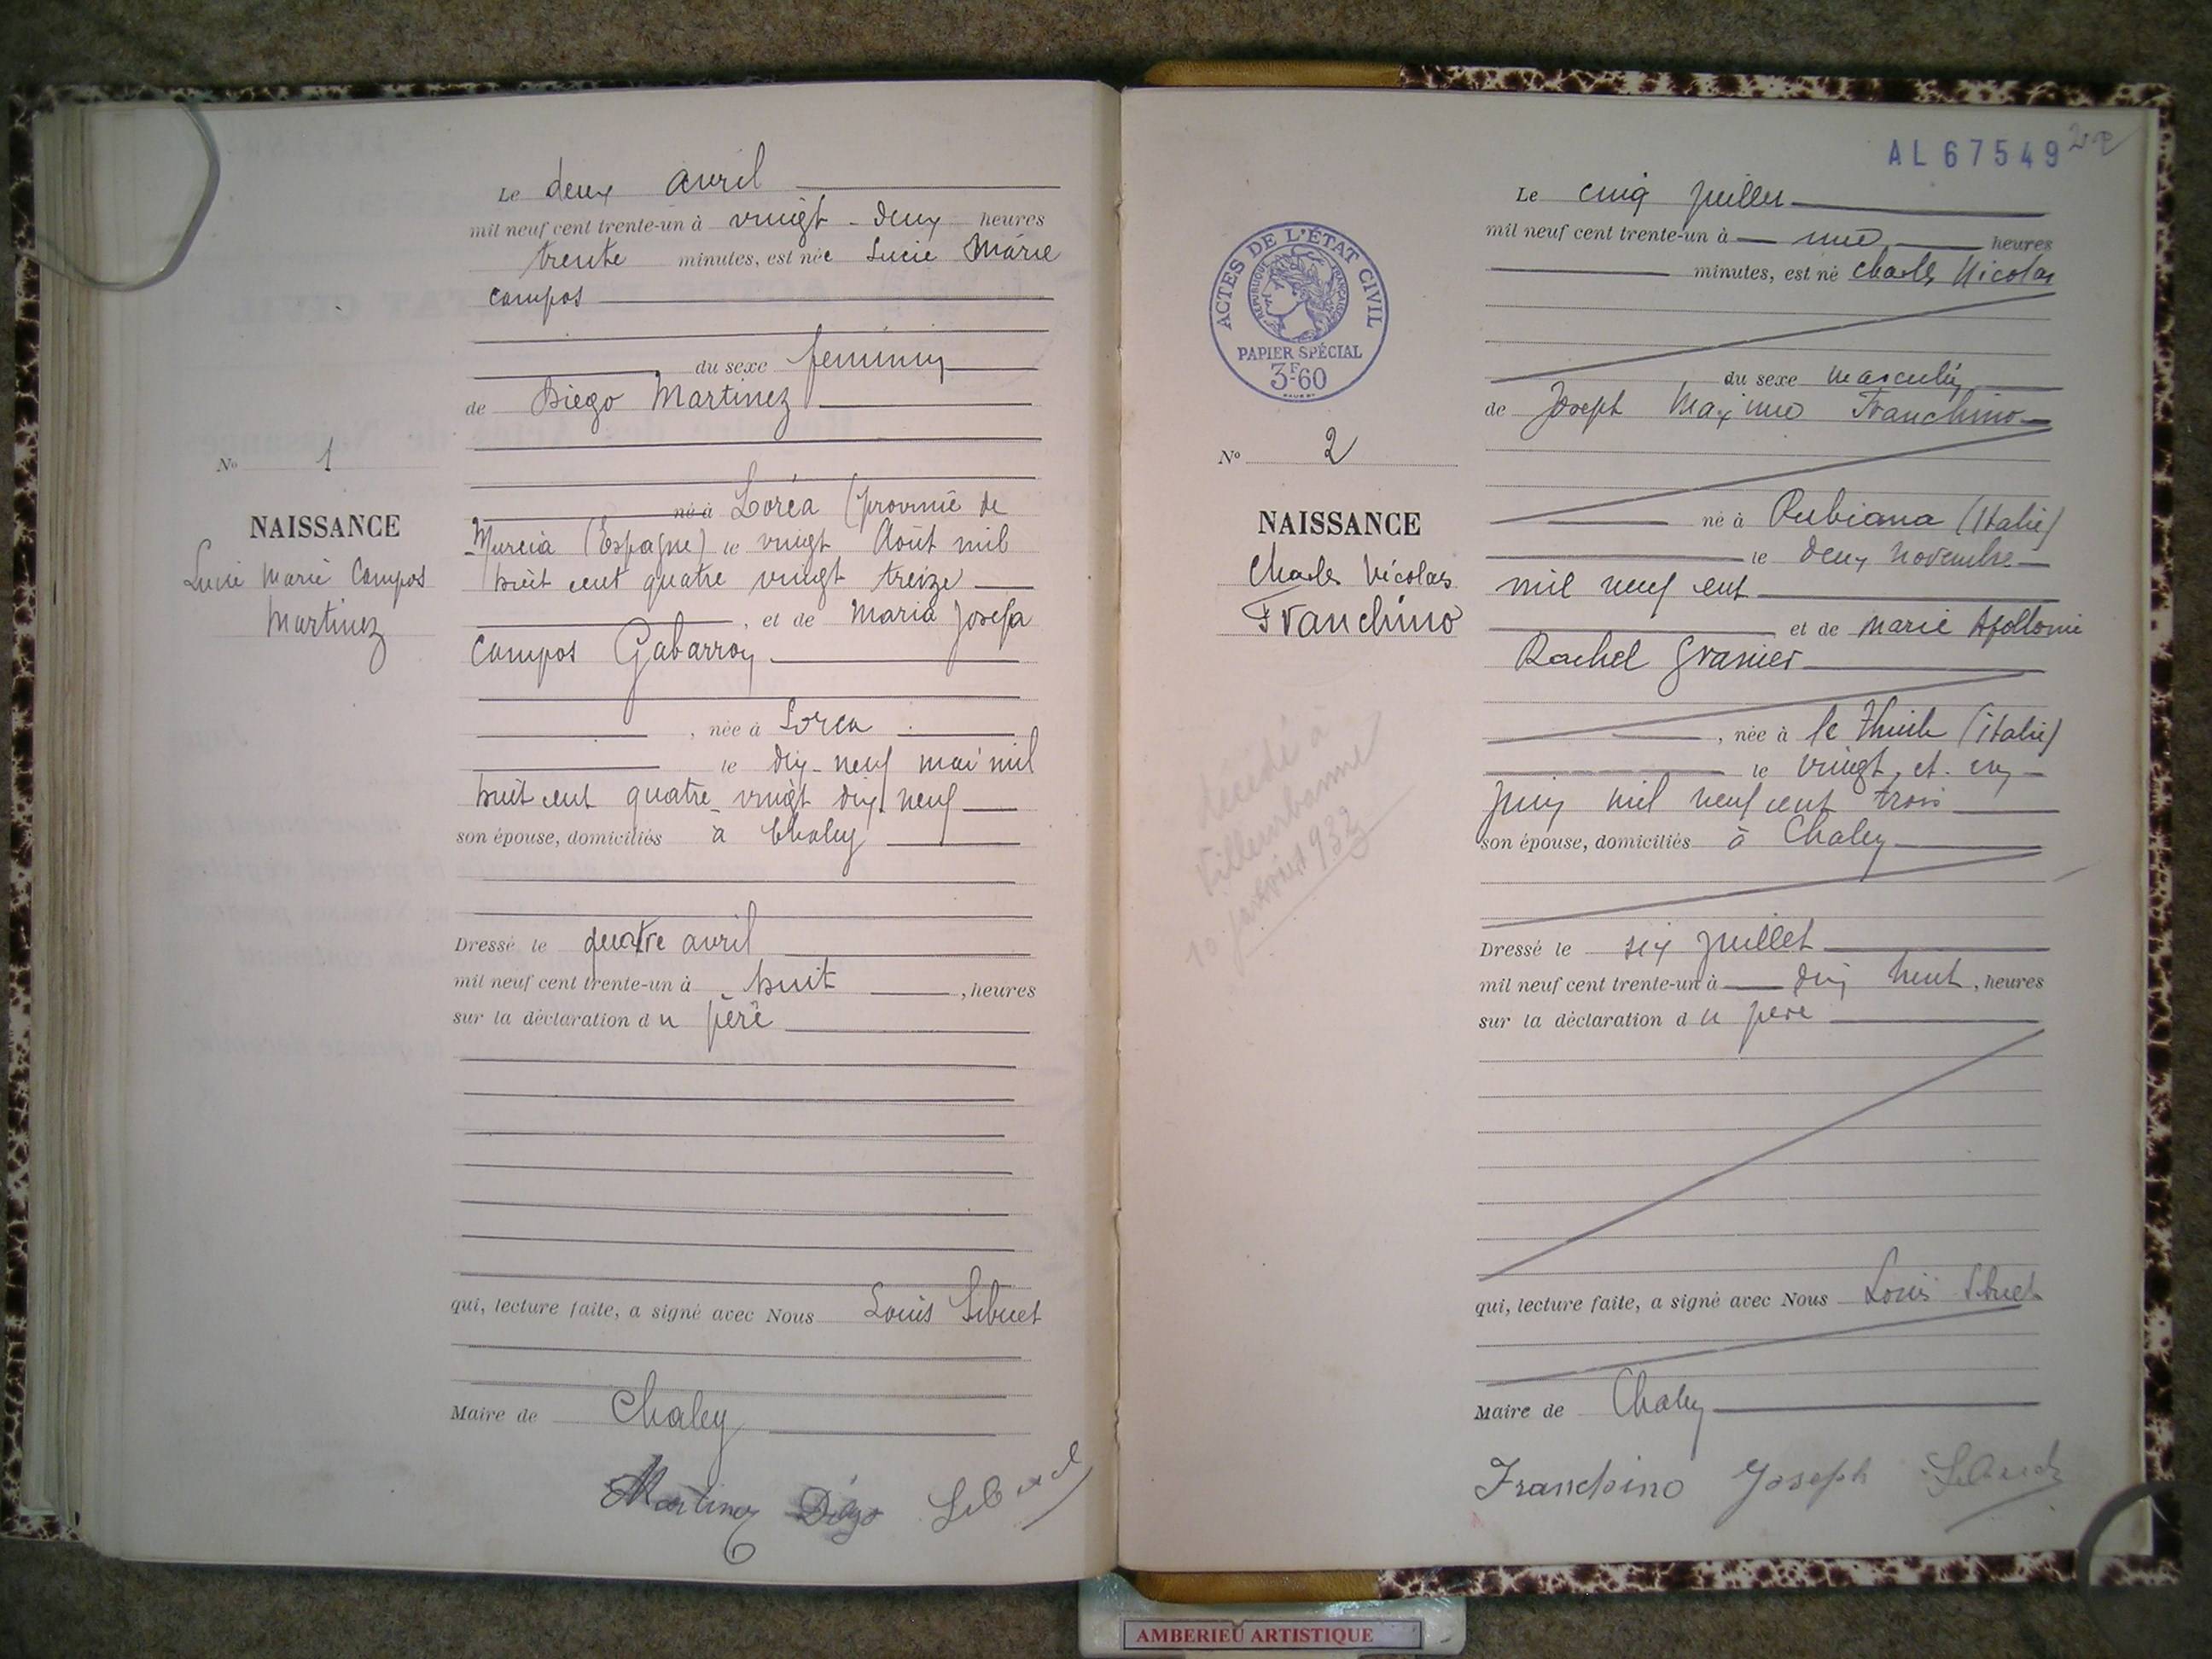 Le deux avril
mil neuf cent trente-un à vingt-deux heures
trente minutes, est née Lucie Marie
Campos
du sexe féminin
de Diego Martinez
N° 1
né à Lorca (province de
NAISSANCE
Murcia (Espagne) le vingt Août mil
Lucie Marie Campos
huit cent quatre vingt treize
Martinez
, et de Maria Josefa
Campos Gabarron
, née à Lorca
le dix-neuf mai mil
huit cent quatre-vingt dix neuf
son épouse, domiciliés à Chaley
Dressé le quatre avril
mil neuf cent trente-un à huit , heures
sur la déclaration du père
qui, lecture faite, a signé avec Nous Louis Sibuet
Maire de Chaley
Martinez Diégo Sibuet
AL 67549
Le cinq juillet
mil neuf cent trente-un à une heures
minutes, est né Charles Nicolas
ACTES DE L'ÉTAT CIVIL
RÉPUBLIQUE FRANÇAISE
PAPIER SPÉCIAL
3F60
du sexe masculin
de Joseph Maxime Franchino
N° 2
né à Rubiana (Italie)
NAISSANCE
le deux novembre
Charles Nicolas
mil neuf cent
Franchino
et de Marie Apollonie
Rachel Granier
, née à le Thuile (Italie)
le vingt et un
juin mil neuf cent trois
son épouse, domiciliés à Chaley
décédé à
Villeurbanne
10 1932
Dressé le six juillet
mil neuf cent trente-un à dix huit , heures
sur la déclaration du père
qui, lecture faite, a signé avec Nous Louis Sibuet
Maire de Chaley
Franchino Joseph Sibuet
AMBERIEU ARTISTIQUE